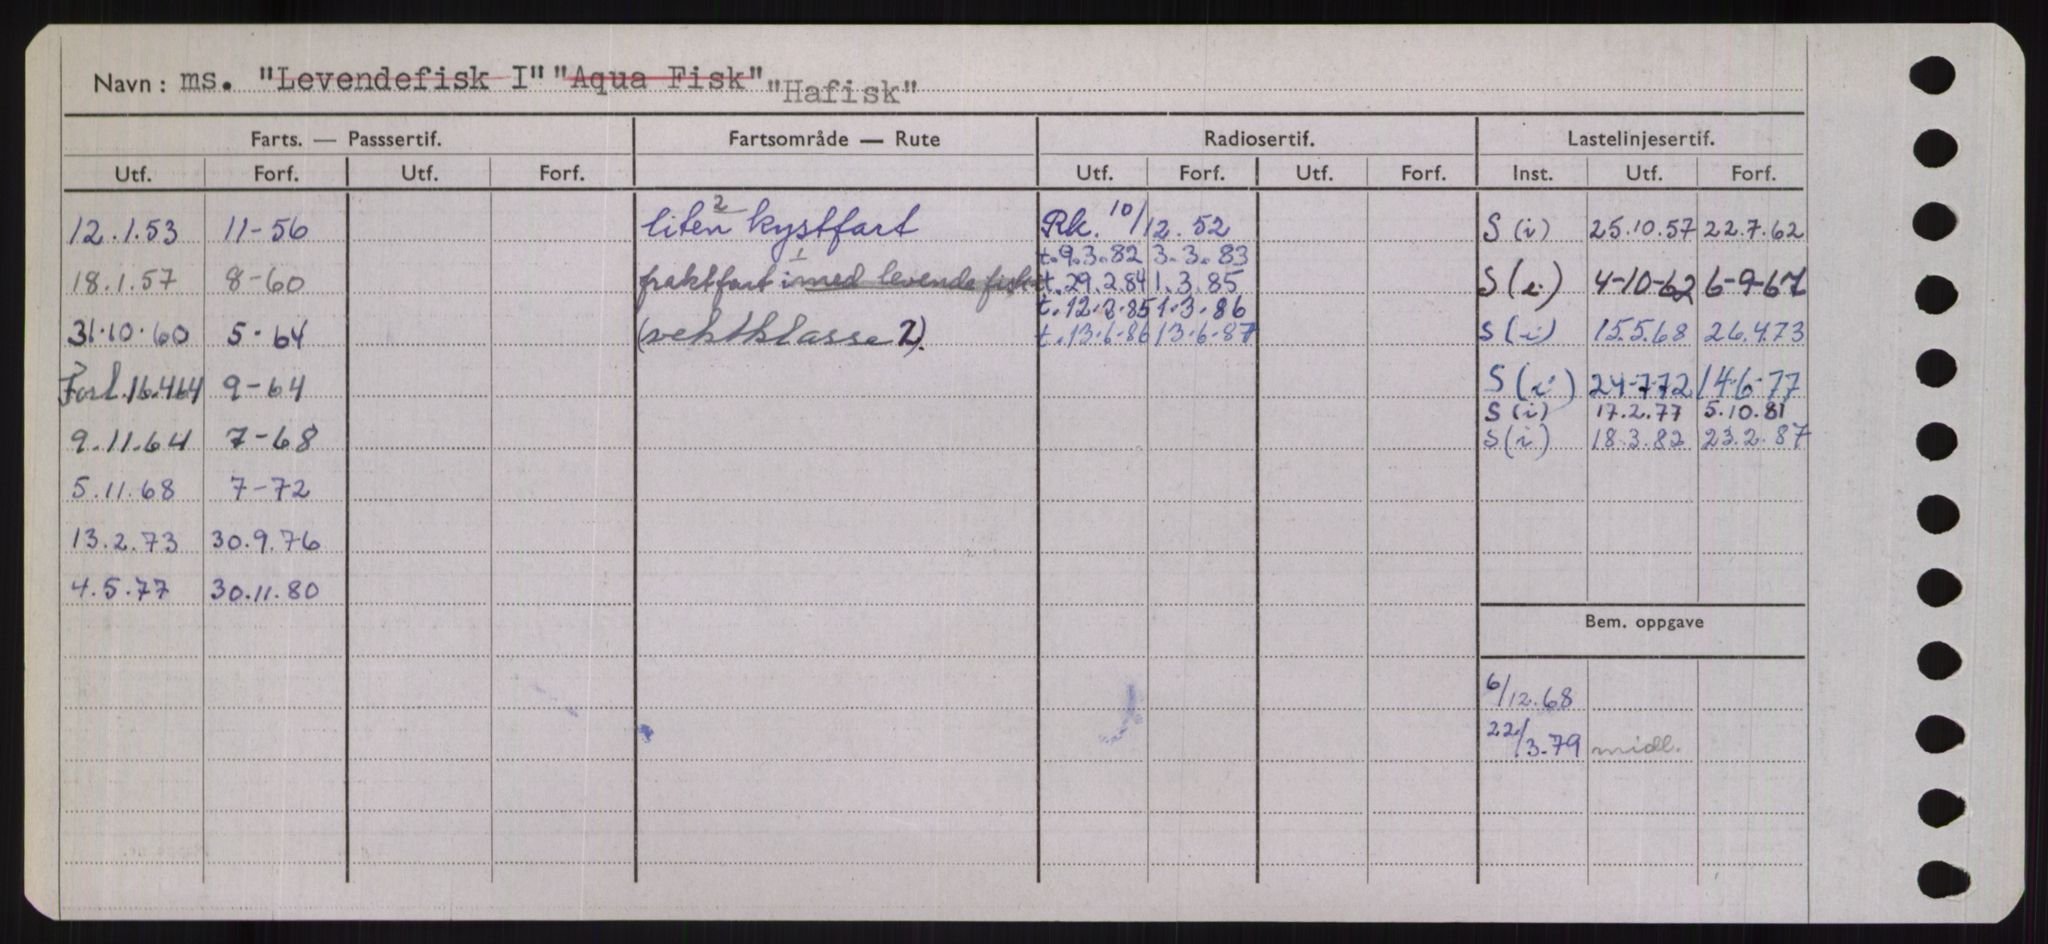 Navn: ms. "Levendefisk I" "Aqua Fisk" "Hafisk"
Farts. — Passsertif. Fartsområde — Rute Radiosertif. Lastelinjesertif.
Utf. Forf. Utf. Forf. Utf. Forf. Utf. Forf. Inst. Utf. Forf.
12.1.53 11-56 liten 2 kystfart Rk. 10/12.52 S (i) 25.10.57 22.7.62
t. 9.3.82 3.3.83
18.1.57 8-60 fraktfart 1 i med levende fisk t. 29.2.84 1.3.85 S (i) 4-10-62 6-9-67
t. 12.3.85 1.3.86
31.10.60 5.64 (vektklasse 2). t. 13.6.86 13.6.87 S (i) 15.5.68 26.4.73
Forl. 16.4.64 9-64 S (i) 24-7-72 14-6-77
S (i) 17.2.77 5.10.81
9.11.64 7-68 S (i) 18.3.82 23.2.87
5.11.68 7-72
13.2.73 30.9.76
4.5.77 30.11.80
Bem. oppgave
6/12.68
22/3.79 midl.